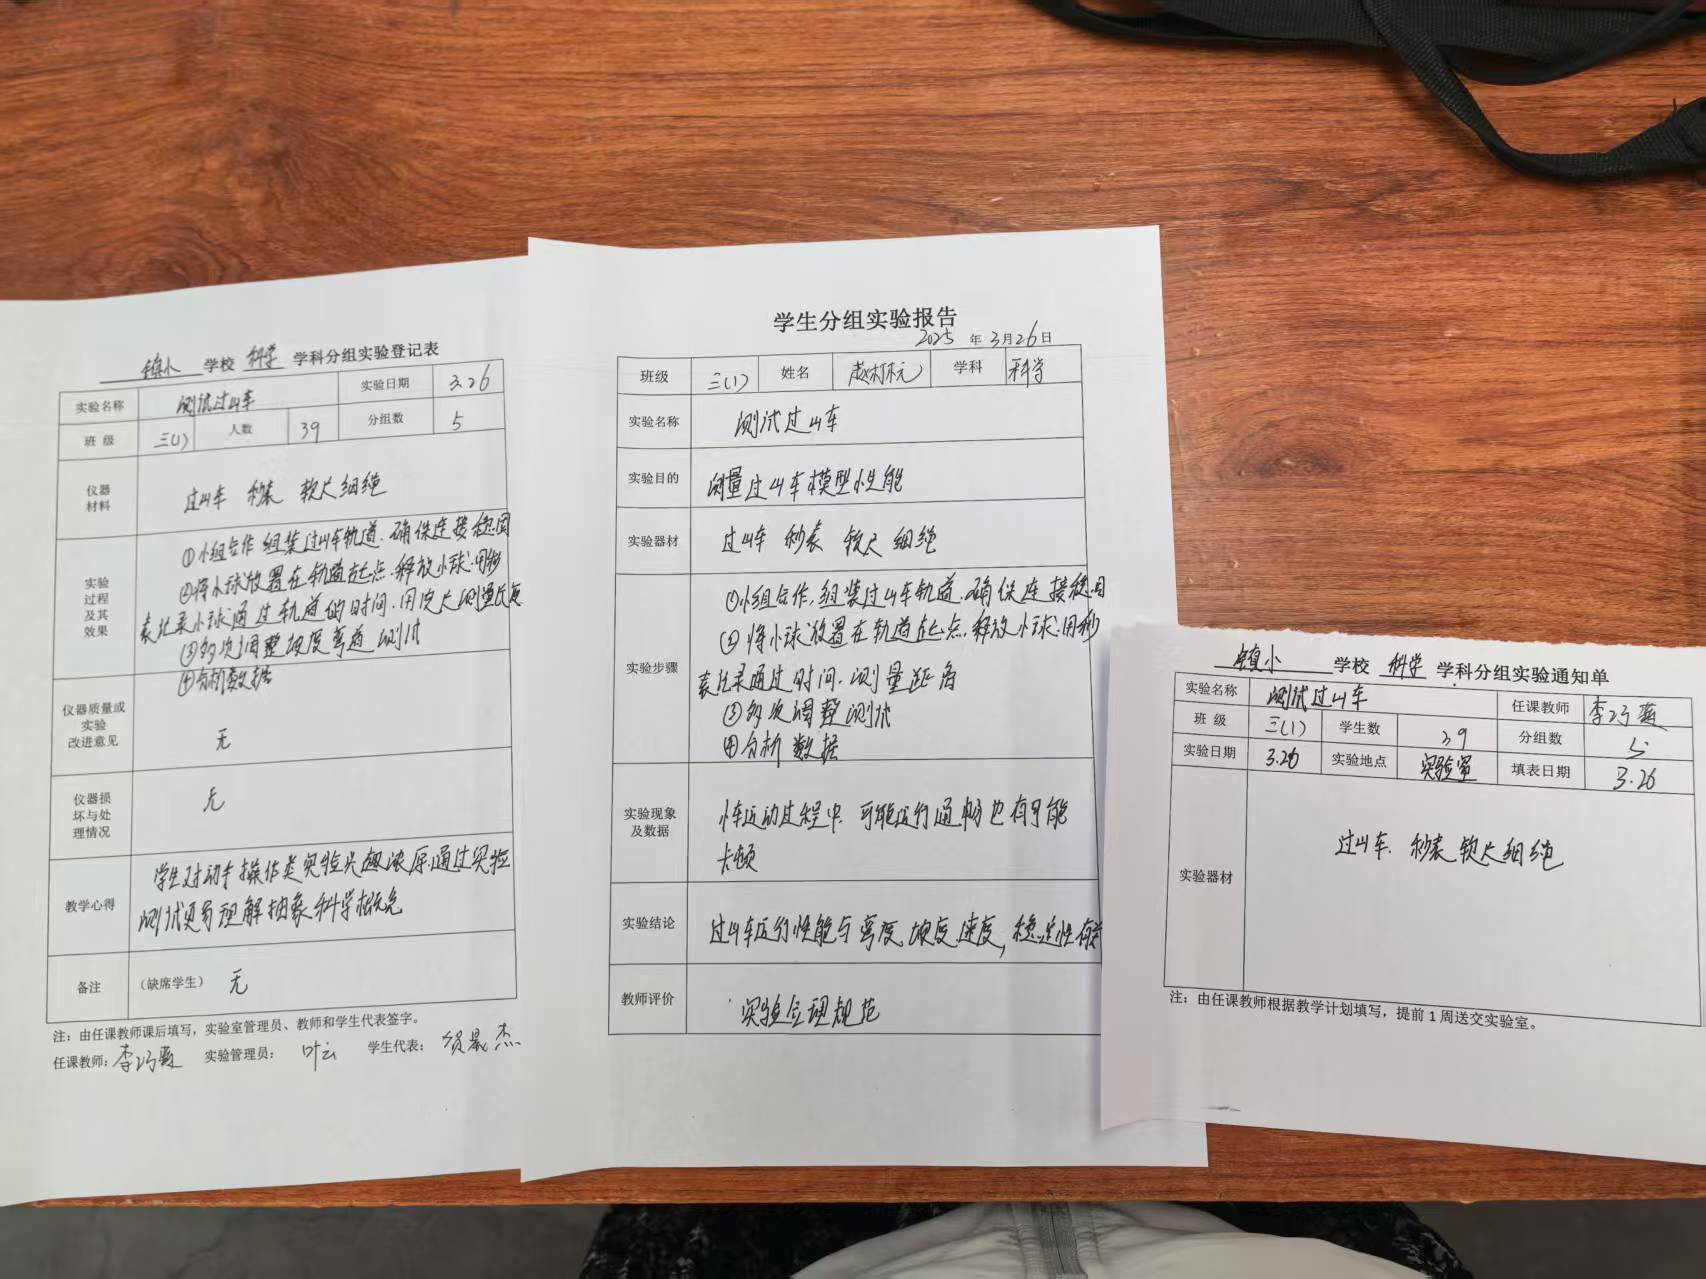 镇小 学校 科学 学科分组实验登记表
实验名称 测试过山车 实验日期 3.26
班 级 三(1) 人数 39 分组数 5
仪器材料 过山车 秒表 软尺 细绳
实验过程及其效果
①小组合作 组装过山车轨道.确保连接稳固
②将小球放置在轨道起点.释放小球.用秒
表记录小球通过轨道的时间.用皮尺测量长度
③多次调整坡度弯道测试
④分析数据
仪器质量或实验改进意见 无
仪器损坏与处理情况 无
教学心得 学生对动手操作类实验兴趣浓厚.通过实验
测试更易理解抽象科学概念
备注 (缺席学生) 无
注：由任课教师课后填写，实验室管理员、教师和学生代表签字。
任课教师: 李巧燕 实验管理员: 叶云 学生代表: 晟杰
学生分组实验报告
2025 年 3月26日
班级 三(1) 姓名 赵 元 学科 科学
实验名称 测试过山车
实验目的 测量过山车模型性能
实验器材 过山车 秒表 软尺 细绳
实验步骤
①小组合作,组装过山车轨道.确保连接稳固
②将小球放置在轨道起点.释放小球.用秒
表记录通过时间.测量距离
③多次调整测试
④分析数据
实验现象及数据 小车运动过程中 可能运行通畅也有可能
卡顿
实验结论 过山车运行性能与弯度 坡度 速度,稳定性有关
教师评价 实验合理规范
镇小 学校 科学 学科分组实验通知单
实验名称 测试过山车 任课教师 李巧燕
班 级 三(1) 学生数 39 分组数 5
实验日期 3.26 实验地点 实验室 填表日期 3.26
实验器材 过山车. 秒表 软尺 细绳
注：由任课教师根据教学计划填写，提前1周送交实验室。